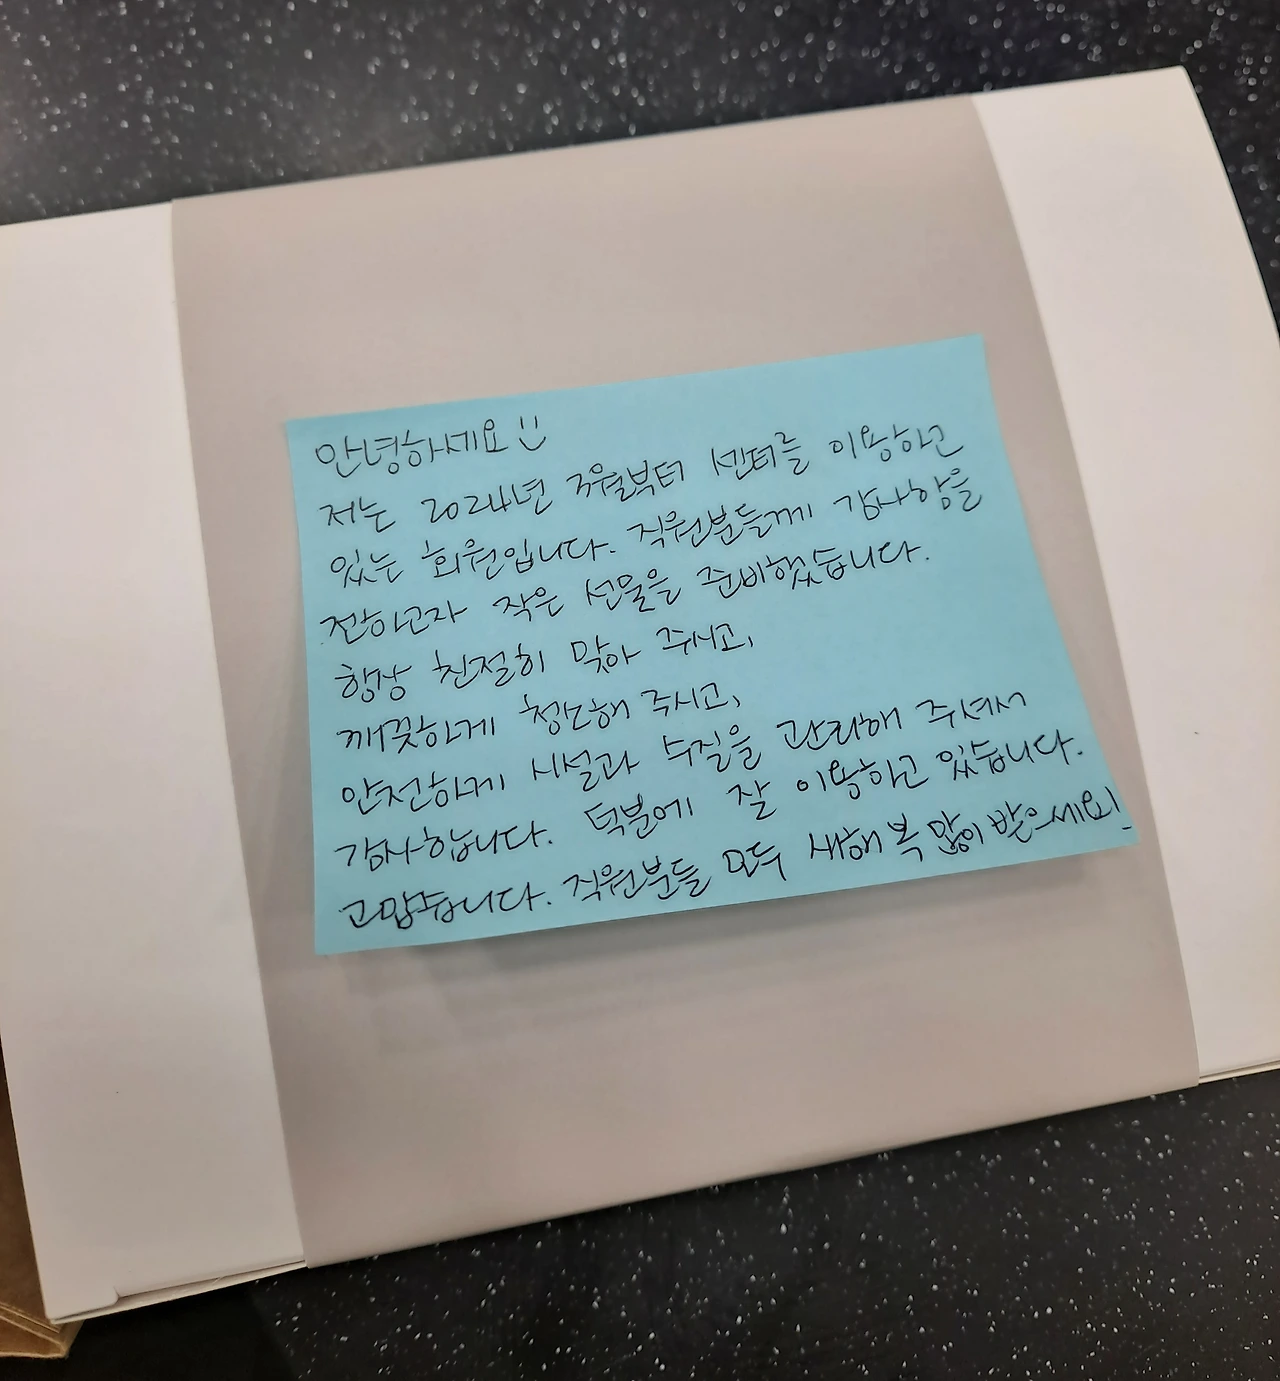 안녕하세요 :)
저는 2024년 3월부터 센터를 이용하고
있는 회원입니다. 직원분들께 감사함을
전하고자 작은 선물을 준비했습니다.
항상 친절히 맞아 주시고,
깨끗하게 청소해 주시고,
안전하게 시설과 수질을 관리해 주셔서
감사합니다. 덕분에 잘 이용하고 있습니다.
고맙습니다. 직원분들 모두 새해 복 많이 받으세요!